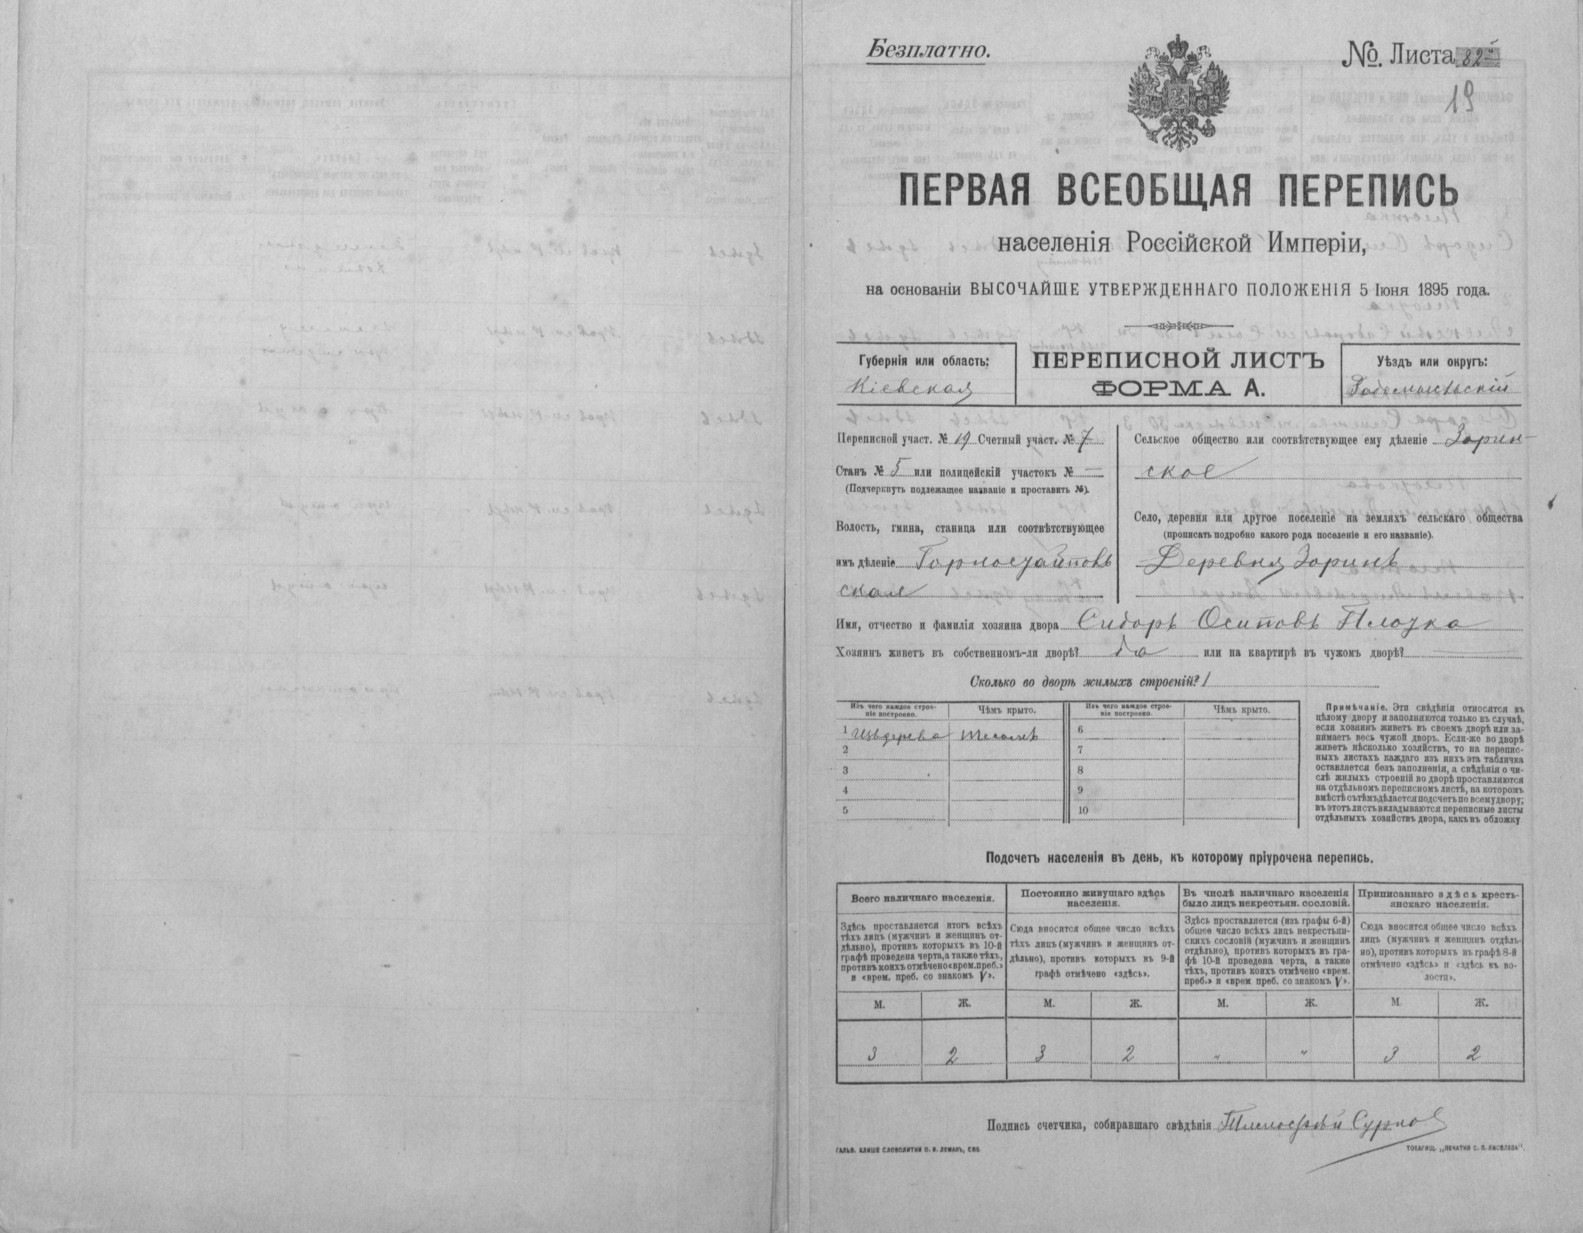 Безплатно.
№. Листа 82
19
ПЕРВАЯ ВСЕОБЩАЯ ПЕРЕПИСЬ
населенія Россійской Имперіи,
на основаніи ВЫСОЧАЙШЕ УТВЕРЖДЕННАГО ПОЛОЖЕНІЯ 5 Іюня 1895 года.
Губернія или область:
Кіевская
ПЕРЕПИСНОЙ ЛИСТЪ
ФОРМА А.
Уѣздъ или округъ:
Радомысльскій
Переписной участ. № 19 Счетный участ. № 7
Станъ № 5 или полицейскій участокъ № —
(Подчеркнуть подлежащее названіе и проставить №).
Волость, гмина, станица или соотвѣтствующее
имъ дѣленіе Горностайпов
ская
Сельское общество или соотвѣтствующее ему дѣленіе Зорин-
ское
Село, деревня или другое поселеніе на земляхъ сельскаго общества
(прописать подробно какого рода поселеніе и его названіе).
Деревня Зоринъ
Имя, отчество и фамилія хозяина двора Сидоръ Осиповъ Плохка
Хозяинъ живетъ въ собственномъ-ли дворѣ? да или на квартирѣ въ чужомъ дворѣ? —
Сколько во дворѣ жилыхъ строеній? 1
Изъ чего каждое строе-
ніе построено.
Чѣмъ крыто.
Изъ чего каждое строе-
ніе построено.
Чѣмъ крыто.
1 Изъ дерева
6
2
7
3
8
4
9
5
10
Примѣчаніе. Эти свѣдѣнія относятся къ
цѣлому двору и заполняются только въ случаѣ,
если хозяинъ живетъ въ своемъ дворѣ или за-
нимаетъ весь чужой дворъ. Если-же во дворѣ
живетъ нѣсколько хозяйствъ, то на перепис-
ныхъ листахъ каждаго изъ нихъ эта табличка
оставляется безъ заполненія, а свѣдѣнія о чи-
слѣ жилыхъ строеній во дворѣ проставляются
на отдѣльномъ переписномъ листѣ, на которомъ
вмѣстѣ съ тѣмъ дѣлается подсчетъ по всему двору;
въ этотъ листъ вкладываются переписные листы
отдѣльныхъ хозяйствъ двора, какъ въ обложку
Подсчетъ населенія въ день, къ которому пріурочена перепись.
Всего наличнаго населенія.
Здѣсь проставляется итогъ всѣхъ
тѣхъ лицъ (мужчинъ и женщинъ от-
дѣльно), противъ которыхъ въ 10-й
графѣ проведена черта, а также тѣхъ,
противъ коихъ отмѣчено «врем. преб.»
и «врем. преб. со знакомъ V».
Постоянно живущаго здѣсь
населенія.
Сюда вносится общее число всѣхъ
тѣхъ лицъ (мужчинъ и женщинъ от-
дѣльно), противъ которыхъ въ 9-й
графѣ отмѣчено «здѣсь».
Въ числѣ наличнаго населенія
было лицъ некрестьян. сословій.
Здѣсь проставляется (изъ графы 6-й)
общее число всѣхъ лицъ некрестьян-
скихъ сословій (мужчинъ и женщинъ
отдѣльно), противъ которыхъ въ гра-
фѣ 10-й проведена черта, а также
тѣхъ, противъ коихъ отмѣчено «врем.
преб.» и «врем преб. со знакомъ V».
Приписаннаго здѣсь кресть-
янскаго населенія.
Сюда вносится общее число всѣхъ
лицъ (мужчинъ и женщинъ отдѣль-
но), противъ которыхъ въ графѣ 8-й
отмѣчено «здѣсь» и «здѣсь въ во-
лости».
М. Ж. М. Ж. М. Ж. М. Ж.
3 2 3 2 „ „ 3 2
Подпись счетчика, собиравшаго свѣдѣнія